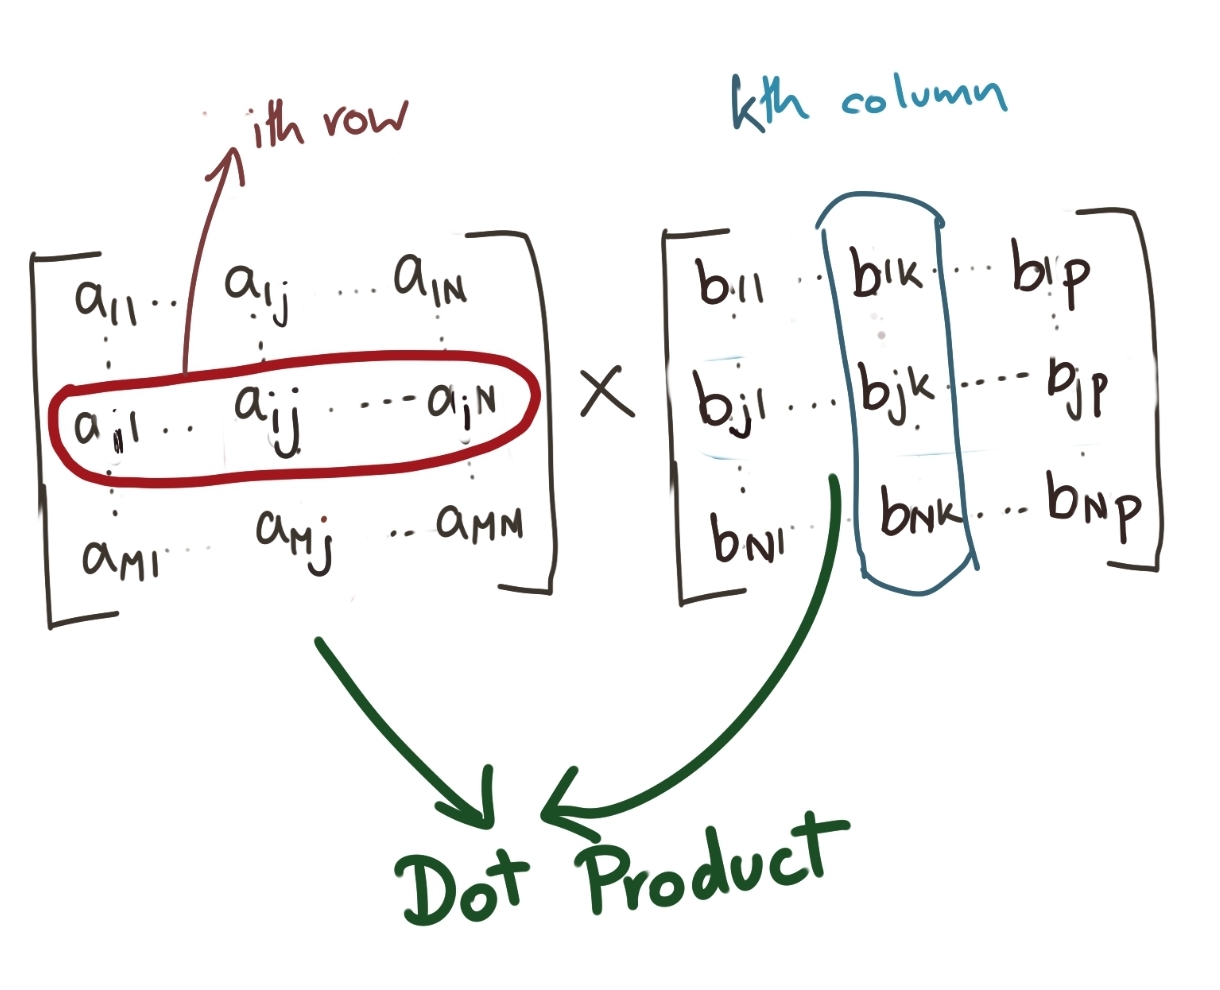 ith row
kth column
a11 .. a1j .... a1N
ai1 .. aij .---- aiN
aM1 .... aMj ... aMN
×
b11 .. b1k ..... b1p
bj1 .... bjk ------ bjp
bN1 .... bNk ... bNp
Dot Product